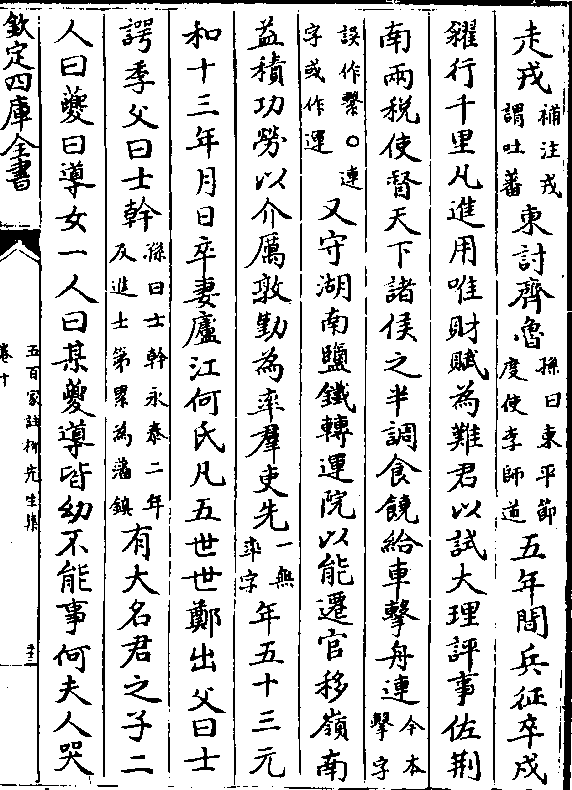 走戎補注戎謂吐蕃東討齊魯孫曰東平節度使李師道五年間兵征卒戍
糴行千里凡進用唯財賦為難君以試大理評事佐荆
南兩税使督天下諸侯之半調食饒給車擊舟連今本擊字
誤作繫○連字或作運又守湖南鹽鐵轉運院以能遷官移嶺南
益積功勞以介厲敦勤為率羣吏先一無率字年五十三元
和十三年月日卒妻廬江何氏凡五世世鄭出父曰士
諤季父曰士幹孫曰士幹永泰二年及進士第累為藩鎮有大名君之子二
人曰夔曰導女一人曰某夔導皆幼不能事何夫人哭
欽定四庫全書
五百家註柳先生集
卷十